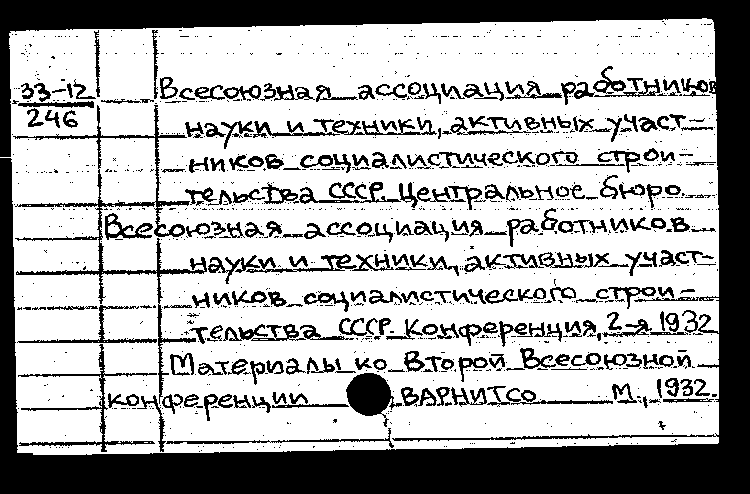 33-12
246
Всесоюзная ассоциация работников
науки и техники, активных участ-
ников социалистического строи-
тельства СССР. Центральное бюро
Всесоюзная ассоциация работников
науки и техники, активных участ-
ников социалистического строи-
тельства СССР. Конференция, 2-я 1932
Материалы ко Второй Всесоюзной
конференции ВАРНИТСО М., 1932.